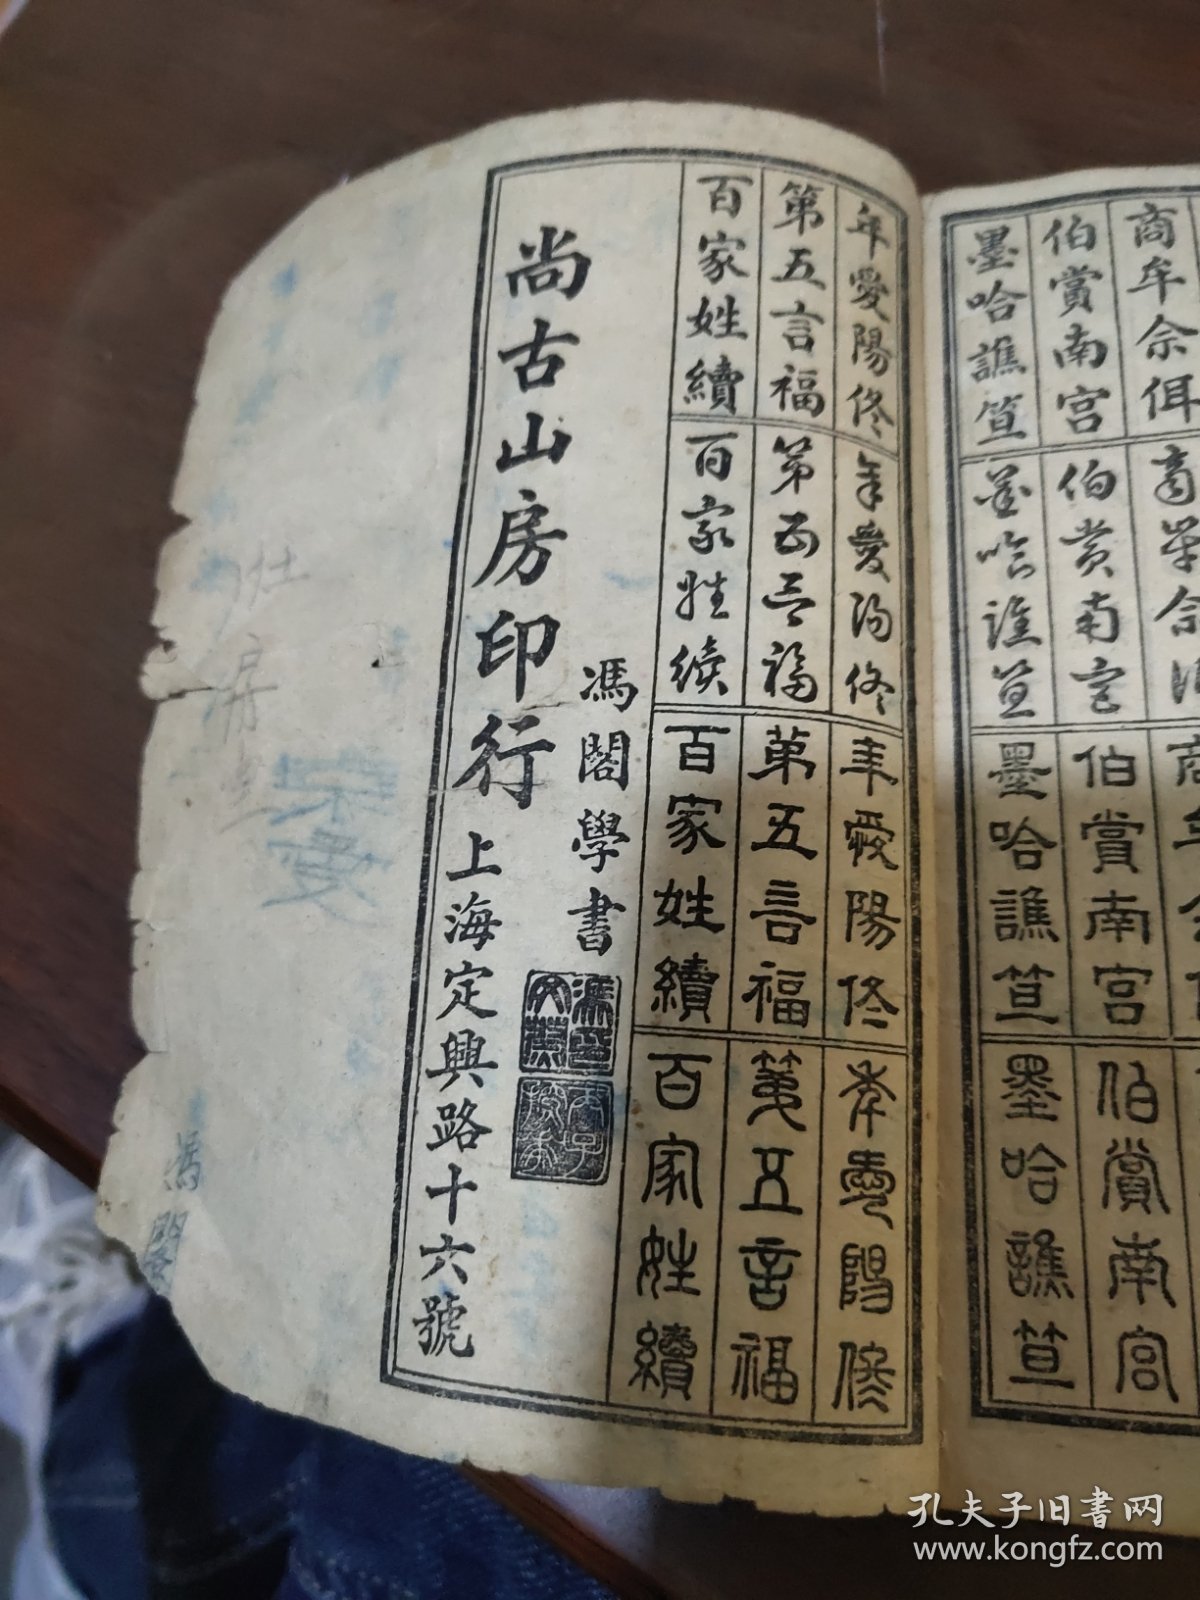 商牟佘佴
伯賞南宮
墨哈譙笪
商牟佘
伯賞南宮
墨哈譙笪
伯賞南宮
墨哈譙笪
伯賞南宮
墨哈譙笪
年愛陽佟
第五言福
百家姓續
年愛陽佟
第五言福
百家姓續
年愛陽佟
第五言福
百家姓續
年愛陽佟
第五言福
百家姓續
馮閣學書
尚古山房印行
上海定興路十六號
馮
孔夫子旧书网
www.kongfz.com